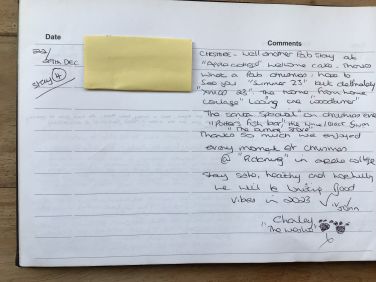 Date
Comments
22/
29th DEC
Stay 4
CHRISTMAS - Well another Fab Stay at
"Apple cottage" welcome cake - Thanks
What a Fab Christmas, hope to
See you "Summer 23" but definitely
"XMAS 23". The "home from home
cottage" Loving the "woodburner"
The Santa Special on Christmas Eve
"Potters fish bar" the
"The burning store"
Thanks so much we enjoyed
every moment of Christmas
@ in apple cottage
Stay safe, healthy and hopefully
we will be having good
vibes in 2023 Viv
John
"Charley
"The Westie"
x